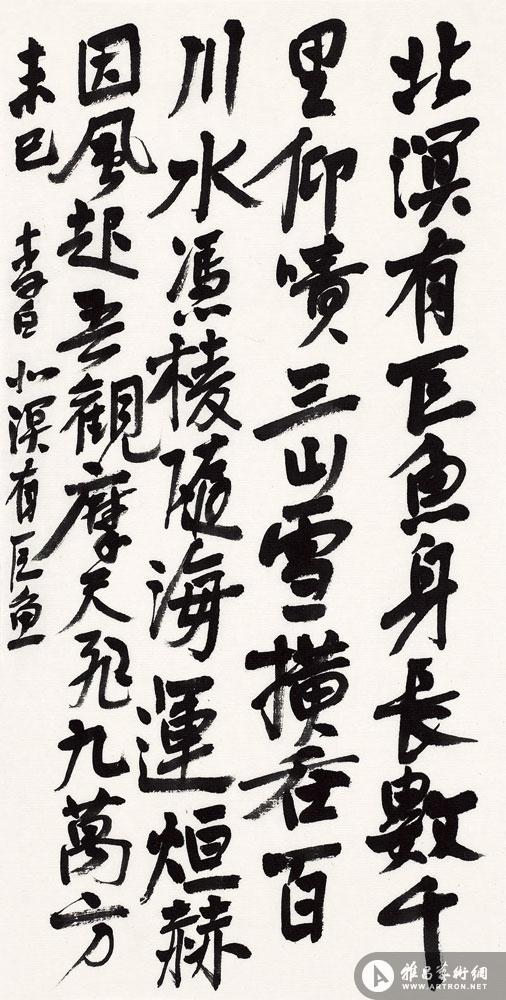 北溟有巨魚身長數千
里仰噴三山雪橫吞百
川水憑棱隨海運烜赫
因風起吾觀摩天飛九萬方
未已 李白 北溟有巨魚
雅昌藝術網
WWW.ARTRON.NET